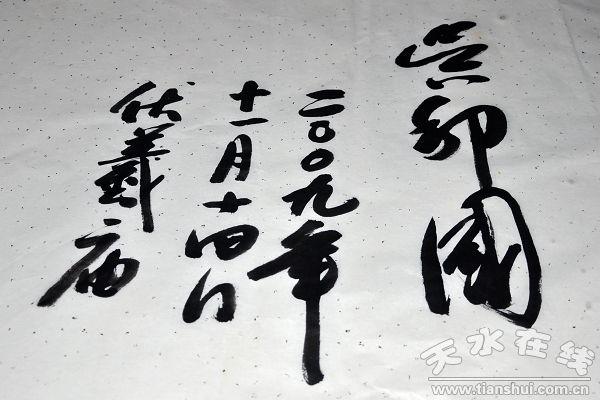 吴邦國
二〇〇九年
十一月十四日
伏羲庙
天水在线
www.tianshui.com.cn